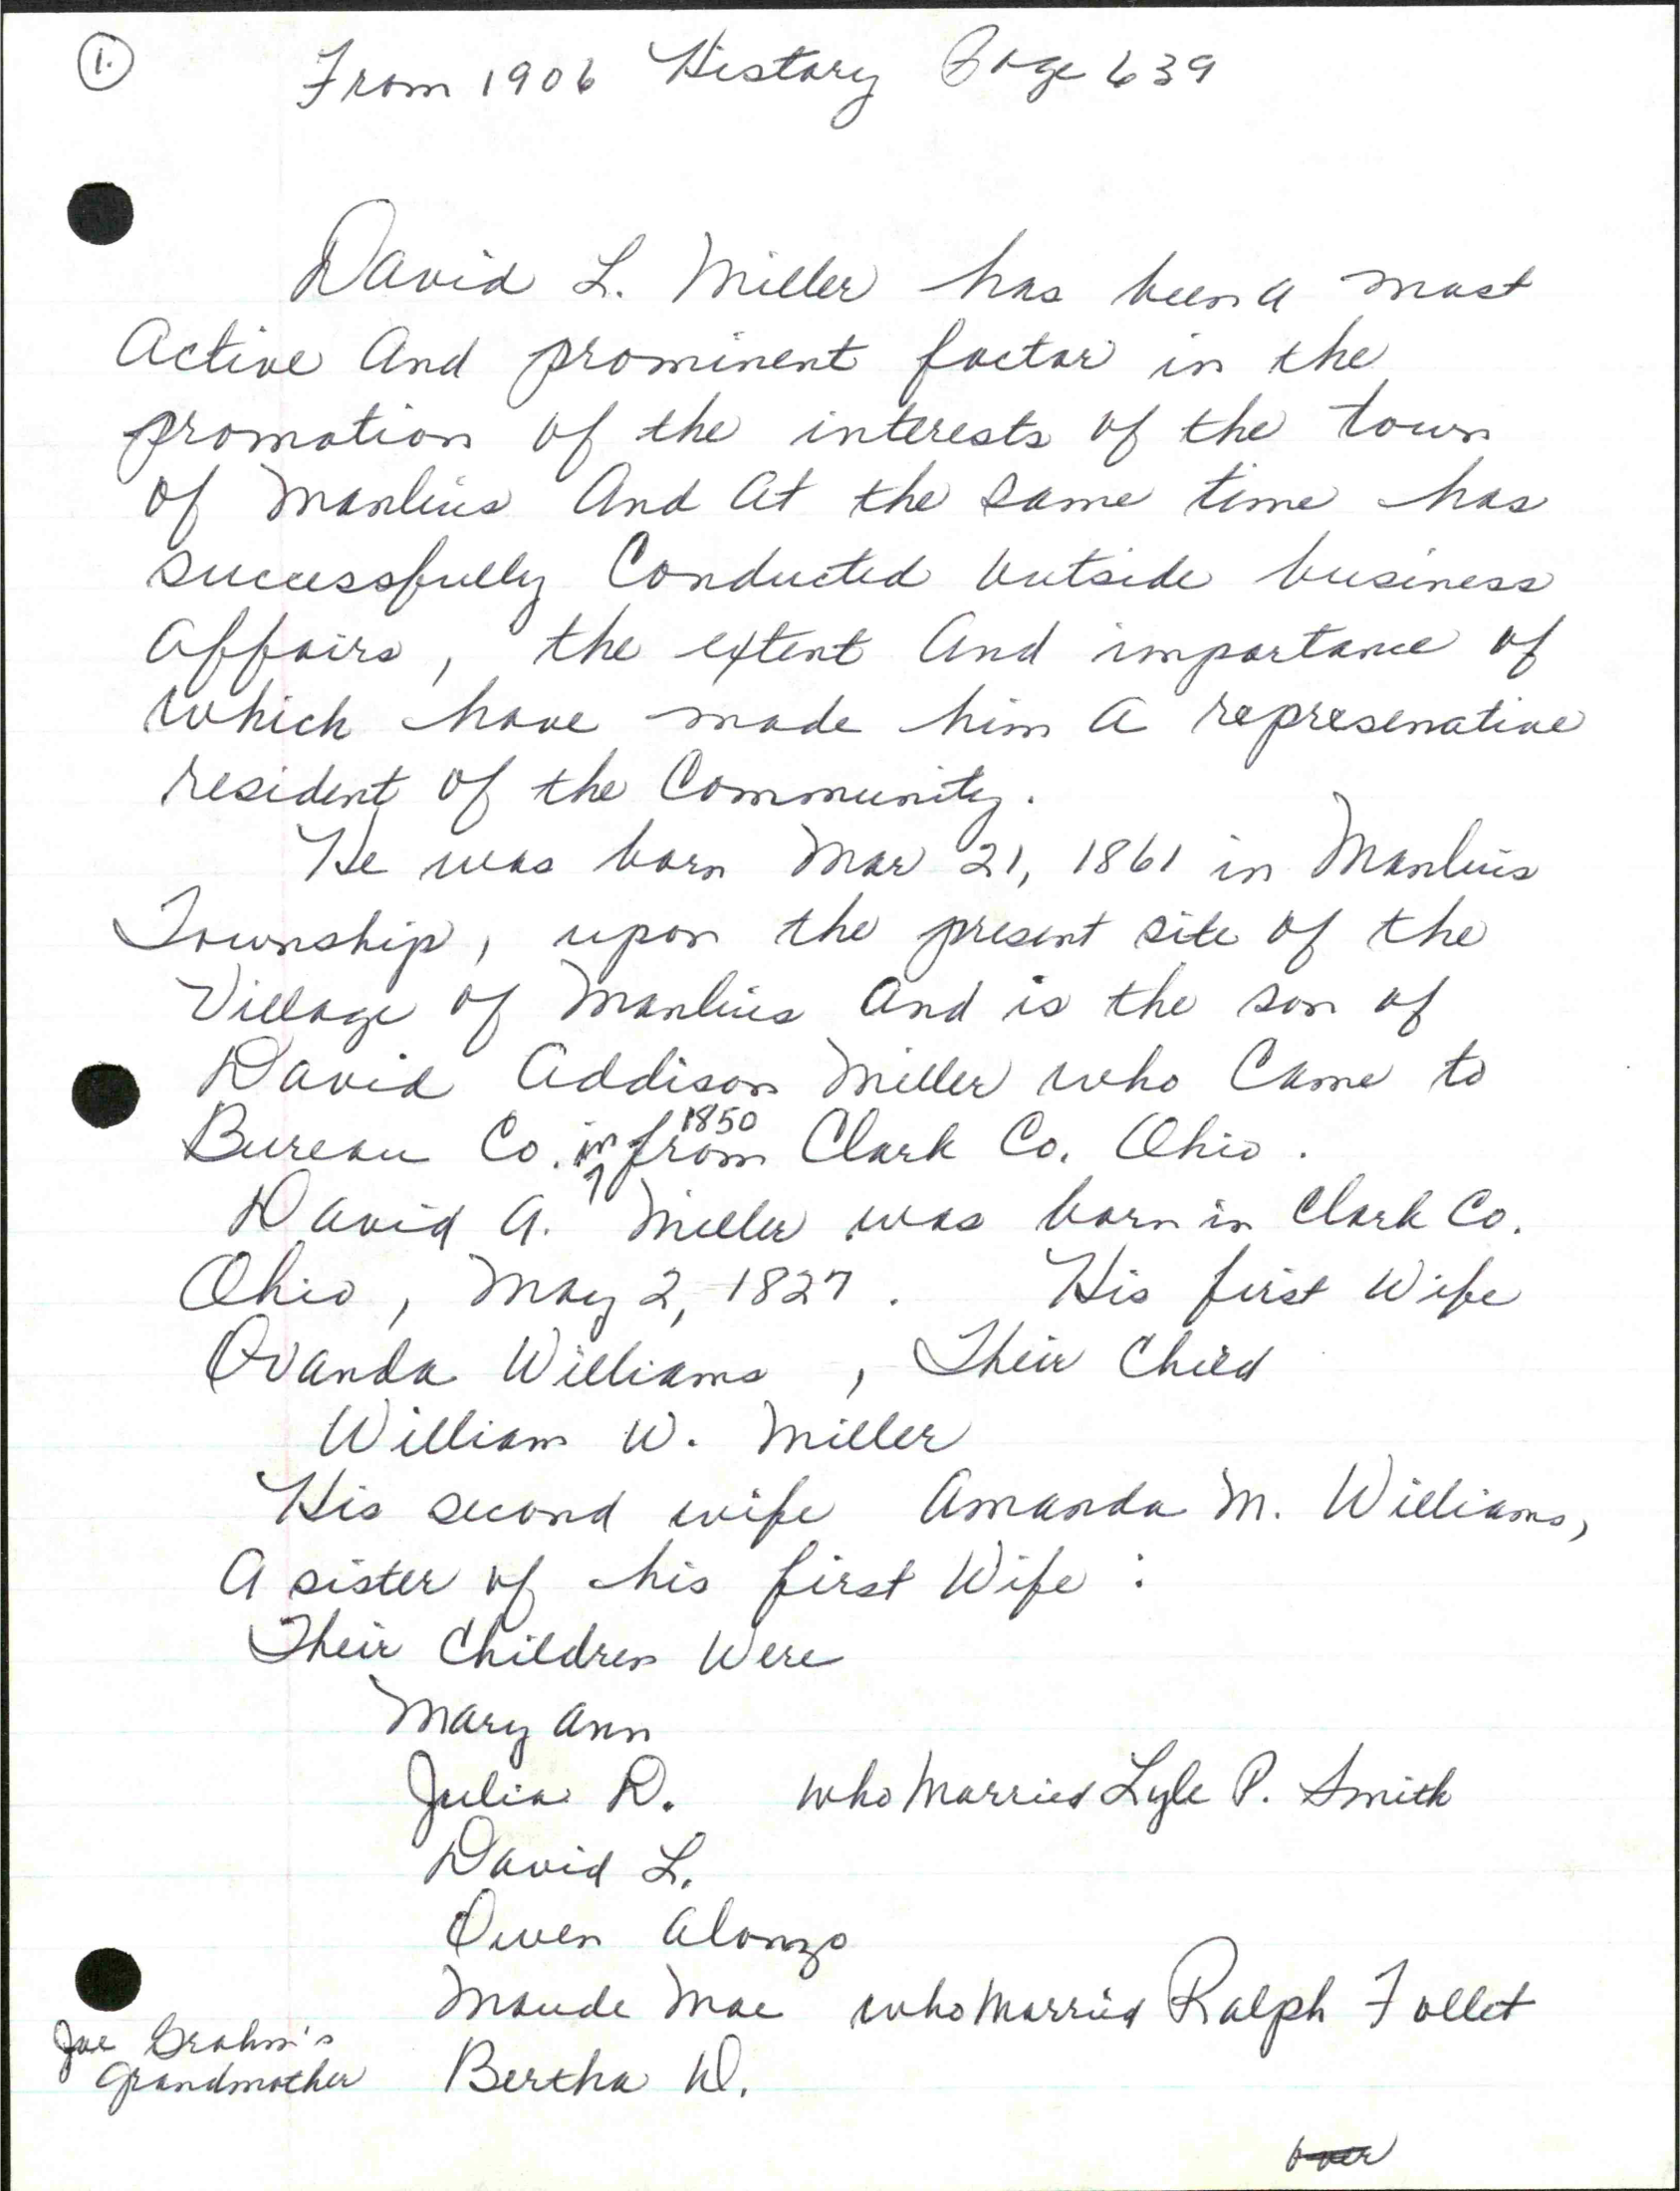 1.
From 1906 History Page 639
David L. Miller has been a most
Active And prominent factor in the
promotion of the interests of the town
of Manlius And At the same time has
successfully Conducted outside business
Affairs, the extent And importance of
which have made him A represenative
resident of the Community.
He was born Mar 21, 1861 in Manlius
Township, upon the present site of the
Village of Manlius And is the son of
David Addison Miller who Came to
Bureau Co. in 1850 from Clark Co. Ohio.
David A. Miller was born in Clark Co.
Ohio, May 2, 1827. His first Wife
Ovanda Williams, Their Child
William W. Miller
His second wife Amanda M. Williams,
A sister of his first Wife:
Their Children Were
Mary Ann
Julia D. who Married Lyle P. Smith
David L.
Owen Alonzo
Maude Mae who Married Ralph Follet
Joe Grahm's
Grandmother
Bertha W.
over